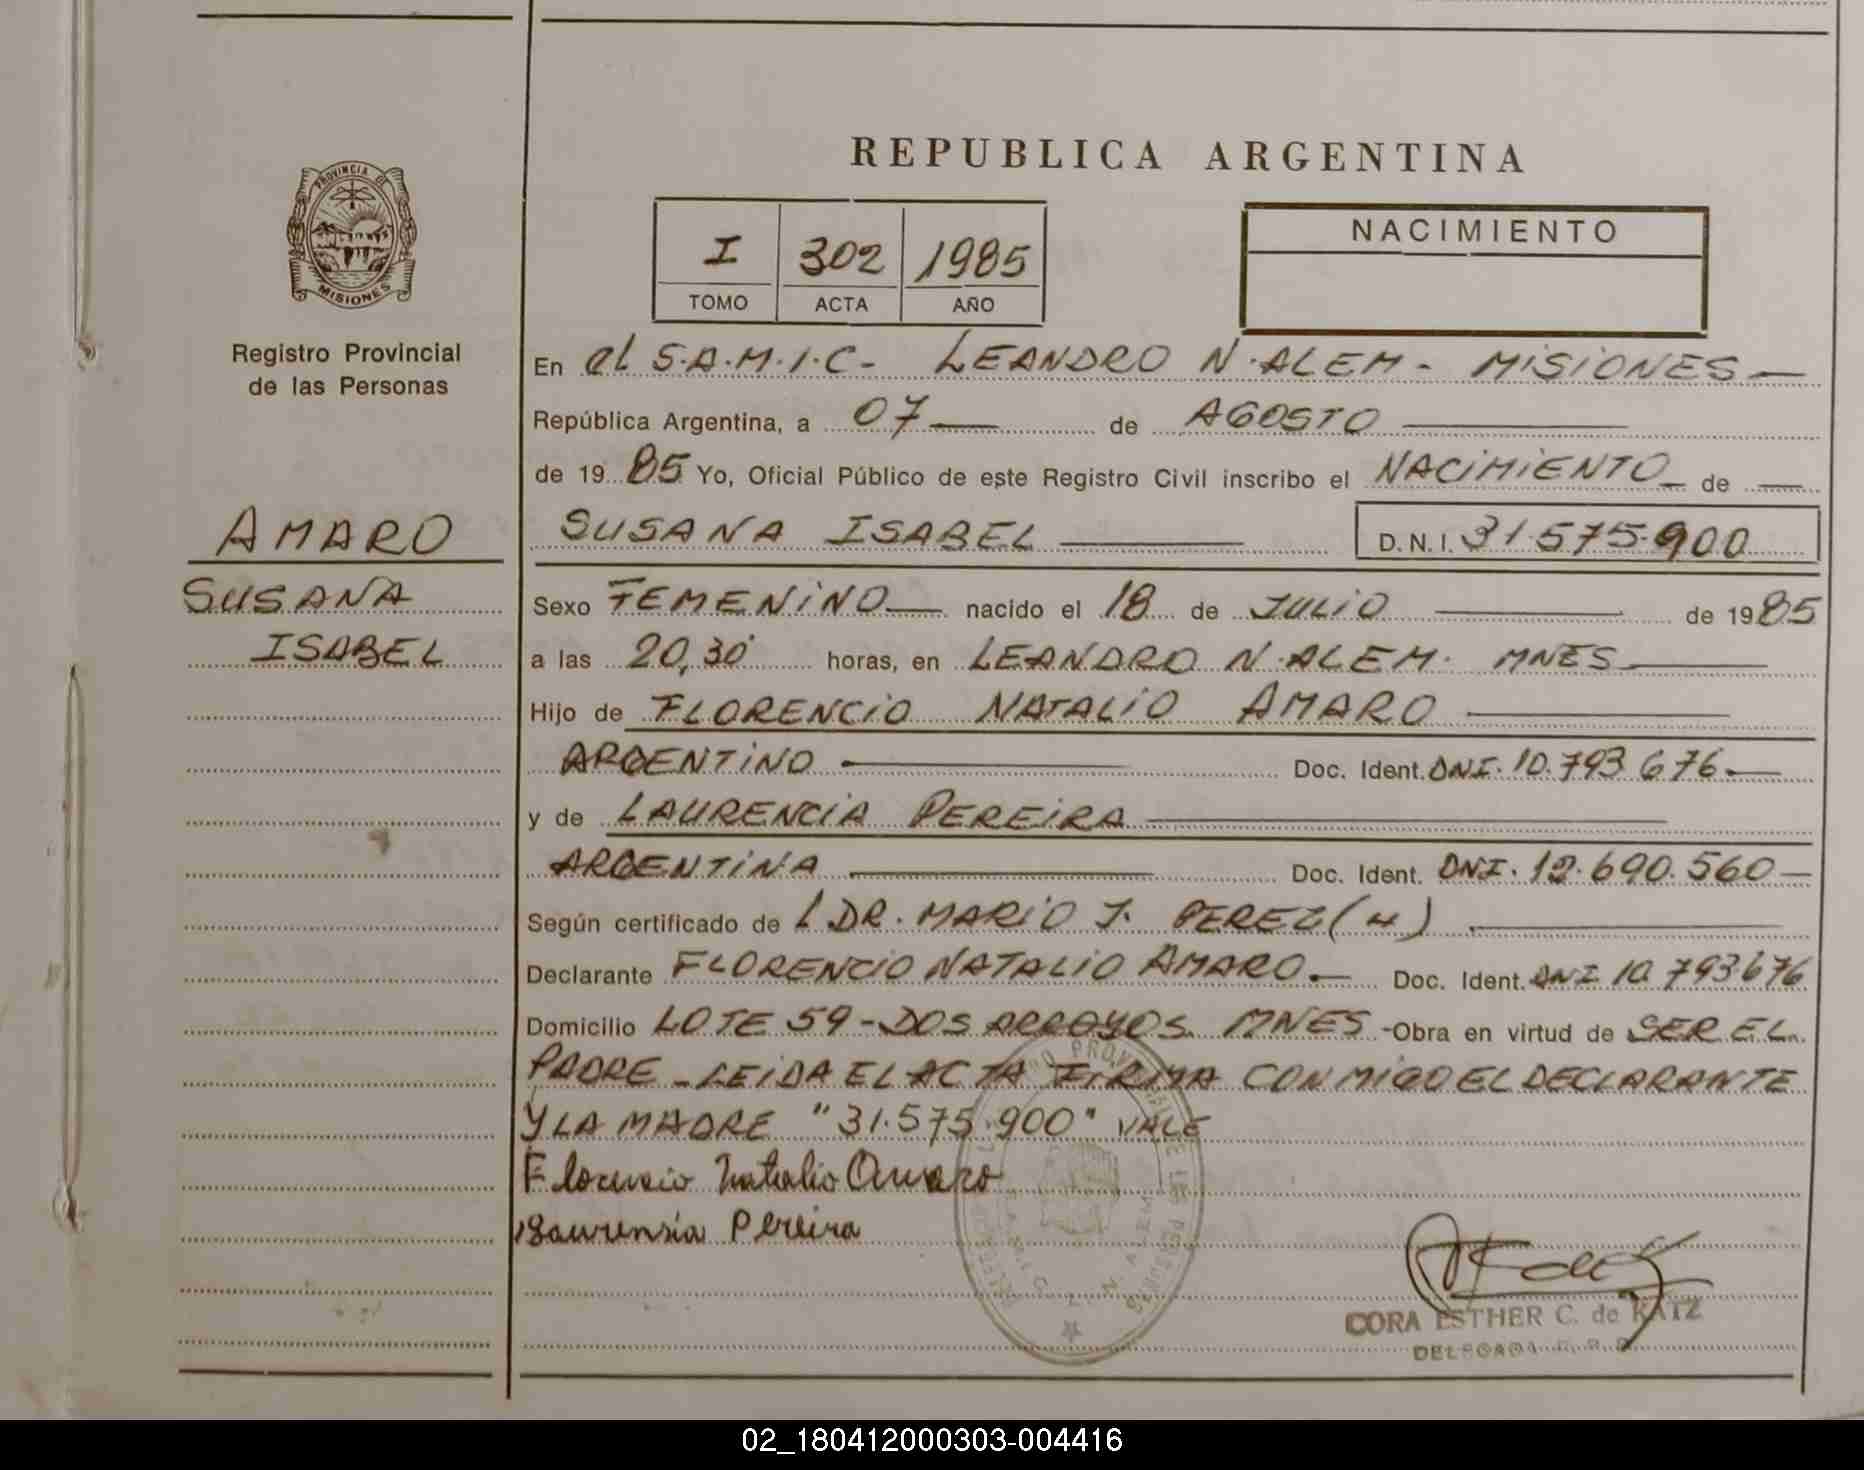 REPUBLICA ARGENTINA
PROVINCIA DE
MISIONES
Registro Provincial
de las Personas
I 302 1985
TOMO ACTA AÑO
NACIMIENTO
AMARO
SUSANA
ISABEL
En el S.A.M.I.C- LEANDRO N.ALEM - MISIONES
República Argentina, a 07 de AGOSTO
de 1985 Yo, Oficial Público de este Registro Civil inscribo el NACIMIENTO de
SUSANA ISABEL D.N.I. 31.575.900
Sexo FEMENINO nacido el 18 de JULIO de 1985
a las 20,30 horas, en LEANDRO N.ALEM. MNES
Hijo de FLORENCIO NATALIO AMARO
ARGENTINO Doc. Ident. DNI. 10.793.676
y de LAURENCIA PEREIRA
ARGENTINA Doc. Ident. DNI. 12.690.560
Según certificado de L DR. MARIO J. PEREZ (H)
Declarante FLORENCIO NATALIO AMARO Doc. Ident. DNI 10.793.676
Domicilio LOTE 59-DOS ARROYOS MNES - Obra en virtud de SER EL
PADRE - LEIDA EL ACTA FIRMA CONMIGO EL DECLARANTE
Y LA MADRE "31.575.900" VALE
Florencio Natalio Amaro
Laurensia Pereira
CORA ESTHER C. de KATZ
DELEGADA
02_180412000303-004416